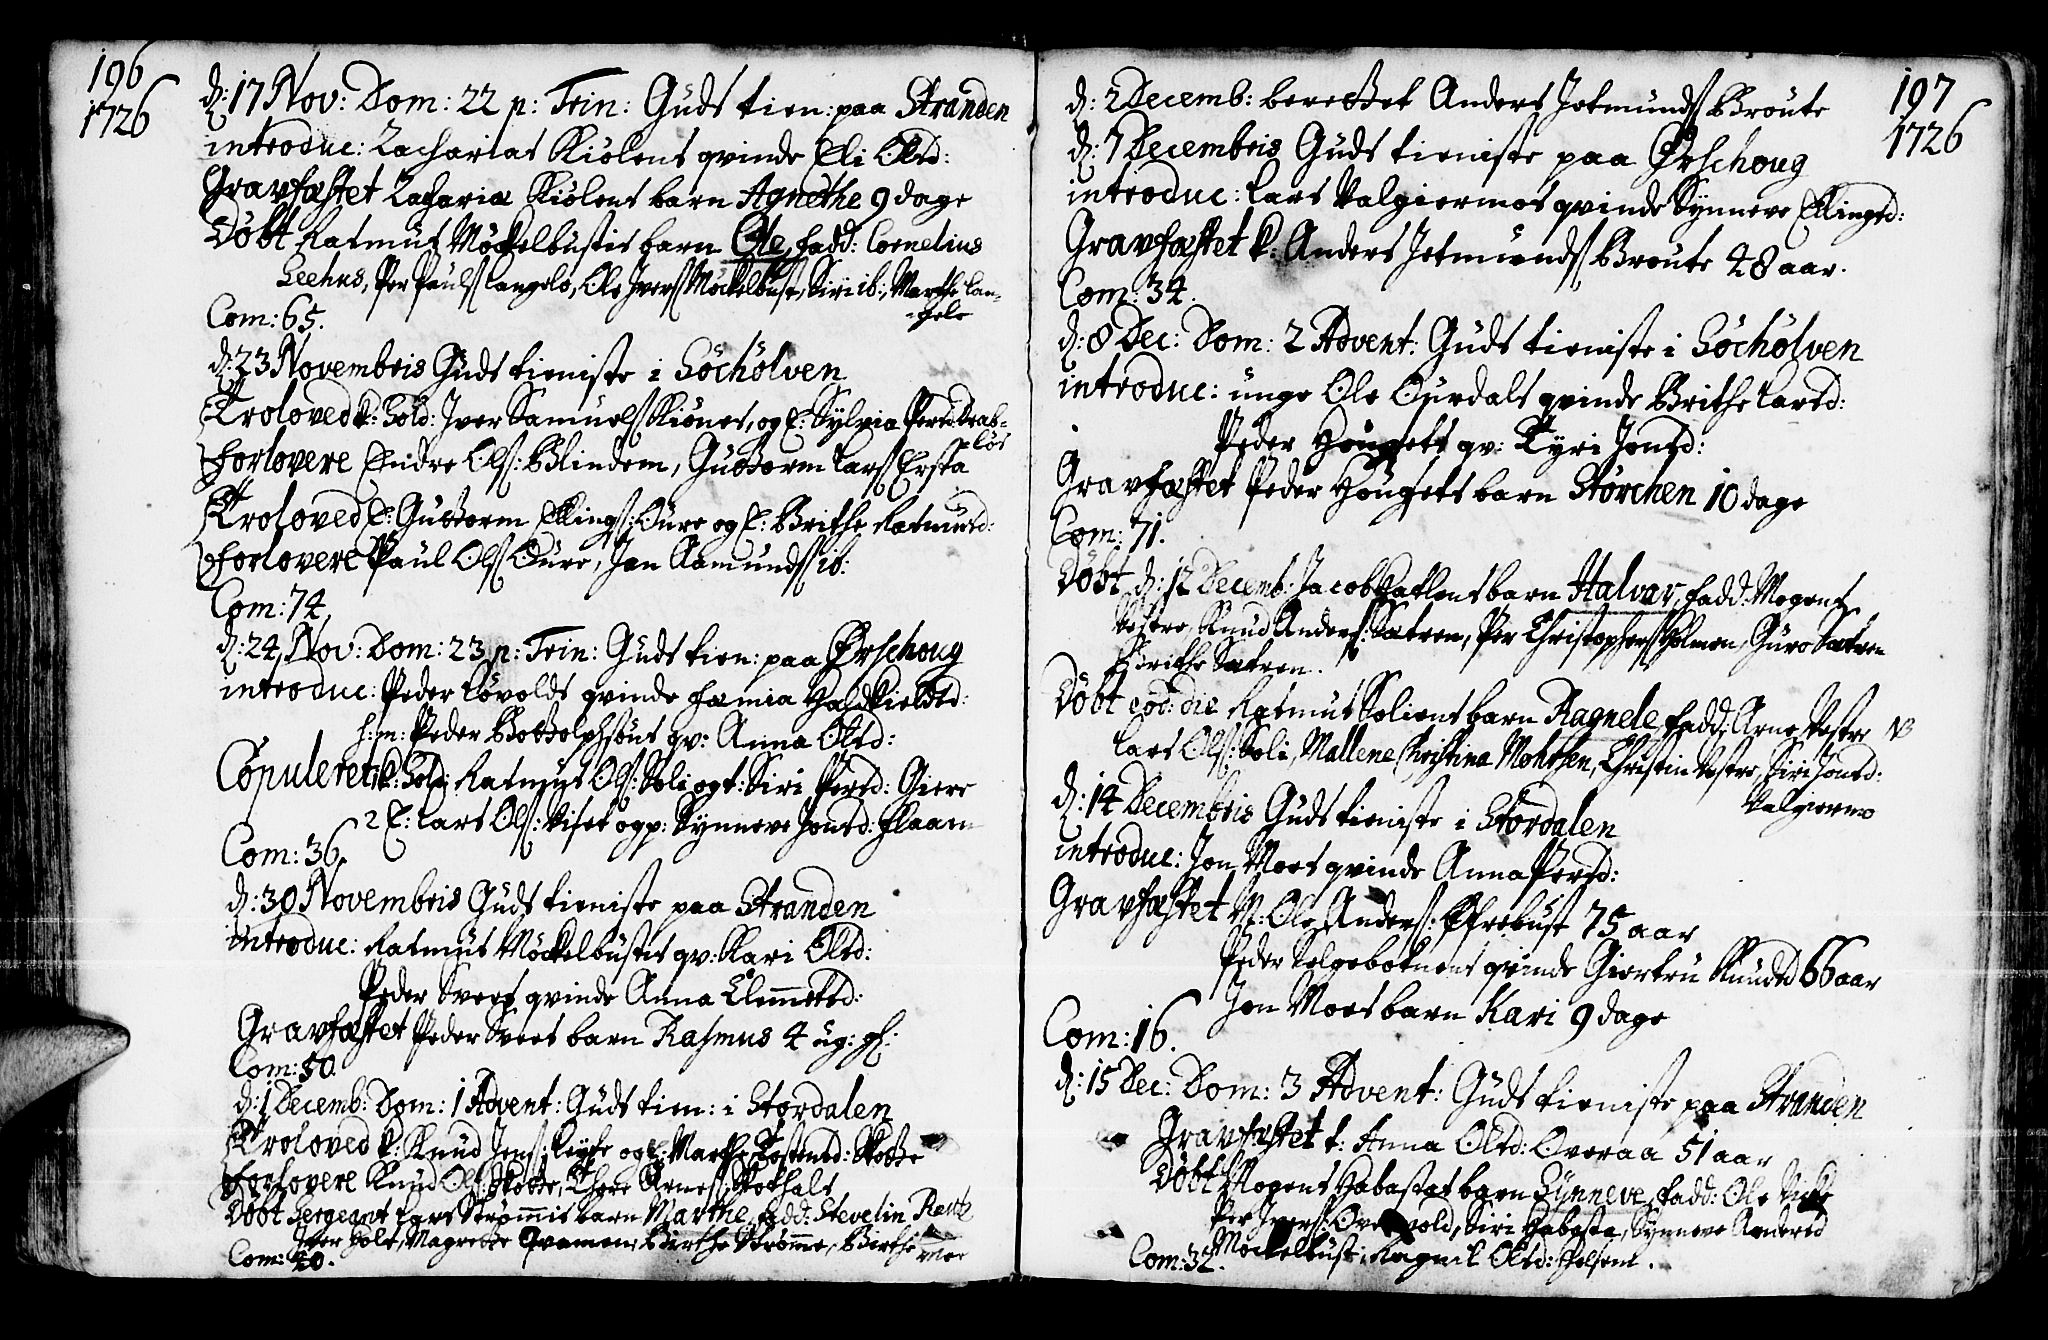 196
1726
d: 17 Nov: Dom: 22 p: Trin: Guds tien: paa Stranden
introduc: Zacharias Kiølens qvinde Eli Olsd:
Gravfæstet Zachariæ Kiølens barn Agnethe 9 dage
Døbt Rasmus Møckelbustis barn Ole, fadd: Cornelius
Leehus, Per Pauls Langelo, Ole Ivers Møckelbust, Siri ib:, Marthe Lan-
-gelo
Com: 65.
d: 23 Novembris Guds tieniste i Söchölven
Troloved k: Sold: Iver Samuels Kiönes, og E: Sylvia Persd
Forlovere Endre Ols: Blindem, Guttorm Lars Ersta
Troloved E: Guttorm Ellings: Oure og E: Brithe Rasmusd:
Forlovere Paul Ols Oure, Jon Aamunds ib:
Com: 74
d: 24 Nov: Dom: 23 p: Trin: Guds tien: paa Ørschoug
introduc: Peder Løvolds qvinde Famia
h: m: Peder Bottolphsöns qv: Anna Olsd:
Copuleret k: Sold: Rasmus Ols: Soli og p: Siri Persd: Giere
2 E: Lars Ols: Viset og p: Synneve Jonsd: Flaaen
Com: 36.
d: 30 Novembris Guds tieniste paa Stranden
introduc: Rasmus Möckelbustis qv: Kari Olsd:
Peder Svees qvinde Anna Clemmetsd:
Gravfæstet Peder Svees barn Rasmus 4 ug: gl:
Com: 50.
d: 1 Decemb: Dom: 1 Advent: Guds tien: i Stordalen
Troloved k: Knud Jens: og E: Marthe Tostensd:
Forlovere Knud Ols: Thore Arnes
Døbt Sergeant Lars Strømmis barn Marthe, fadd: Stevelin
Iver Holt, Magrethe Qvamen, Birthe Strømme, Birthe
Moe
Com: 40.
197
1726
d: 2 Decemb: berettet Anders Jetmunds Broute
d: 7 Decembris Guds tieniste paa Ørschoug
introduc: Lars Valgiermos qvinde Synneve Ellingsd:
Gravfæstet k: Anders Jetmunds Broute 48 aar.
Com: 34.
d: 8 Dec: Dom: 2 Advent: Guds tieniste i Söchölven
introduc: unge Ole Ourdals qvinde Brithe Larsd:
Peder Hougets qv: Kyri Jonsd:
Gravfæstet Peder Hougets barn Störchen 10 dage
Com: 71.
Döbt d: 12 Decemb: Jacob barn Halvar, fadd: Mogens
Vestre, Knud Anders: Sætren, Per Christophers Holmen, Guro Sætren
Brithe Sætren.
Döbt eod: die Rasmus Soliens barn Ragnele, fadd: Arne Vestre NB
Lars Ols: Soli, Mallene Christina Mohtzen, Christin Vestre, Siri Jonsd:
Valgiermo
d: 14 Decembris Guds tieniste i Stordalen
introduc: Jon Moes qvinde Anna Persd:
Gravfæstet M: Ole Anders: 75 aar
Peder qvinde Giertru Knudsd 66 aar
Jon Moes barn Kari 9 dage
Com: 16.
d: 15 Dec: Dom: 3 Advent: Guds tieniste paa Stranden
Gravfæstet k: Anna Olsd: Overaa 51 aar
Döbt Mogens Habostas barn Synneve, fadd: Ole
Per Ivers: Overvold, Siri Habosta, Synneve Andersd
Möckelbust, Ragnil Olsd:
Com: 32.